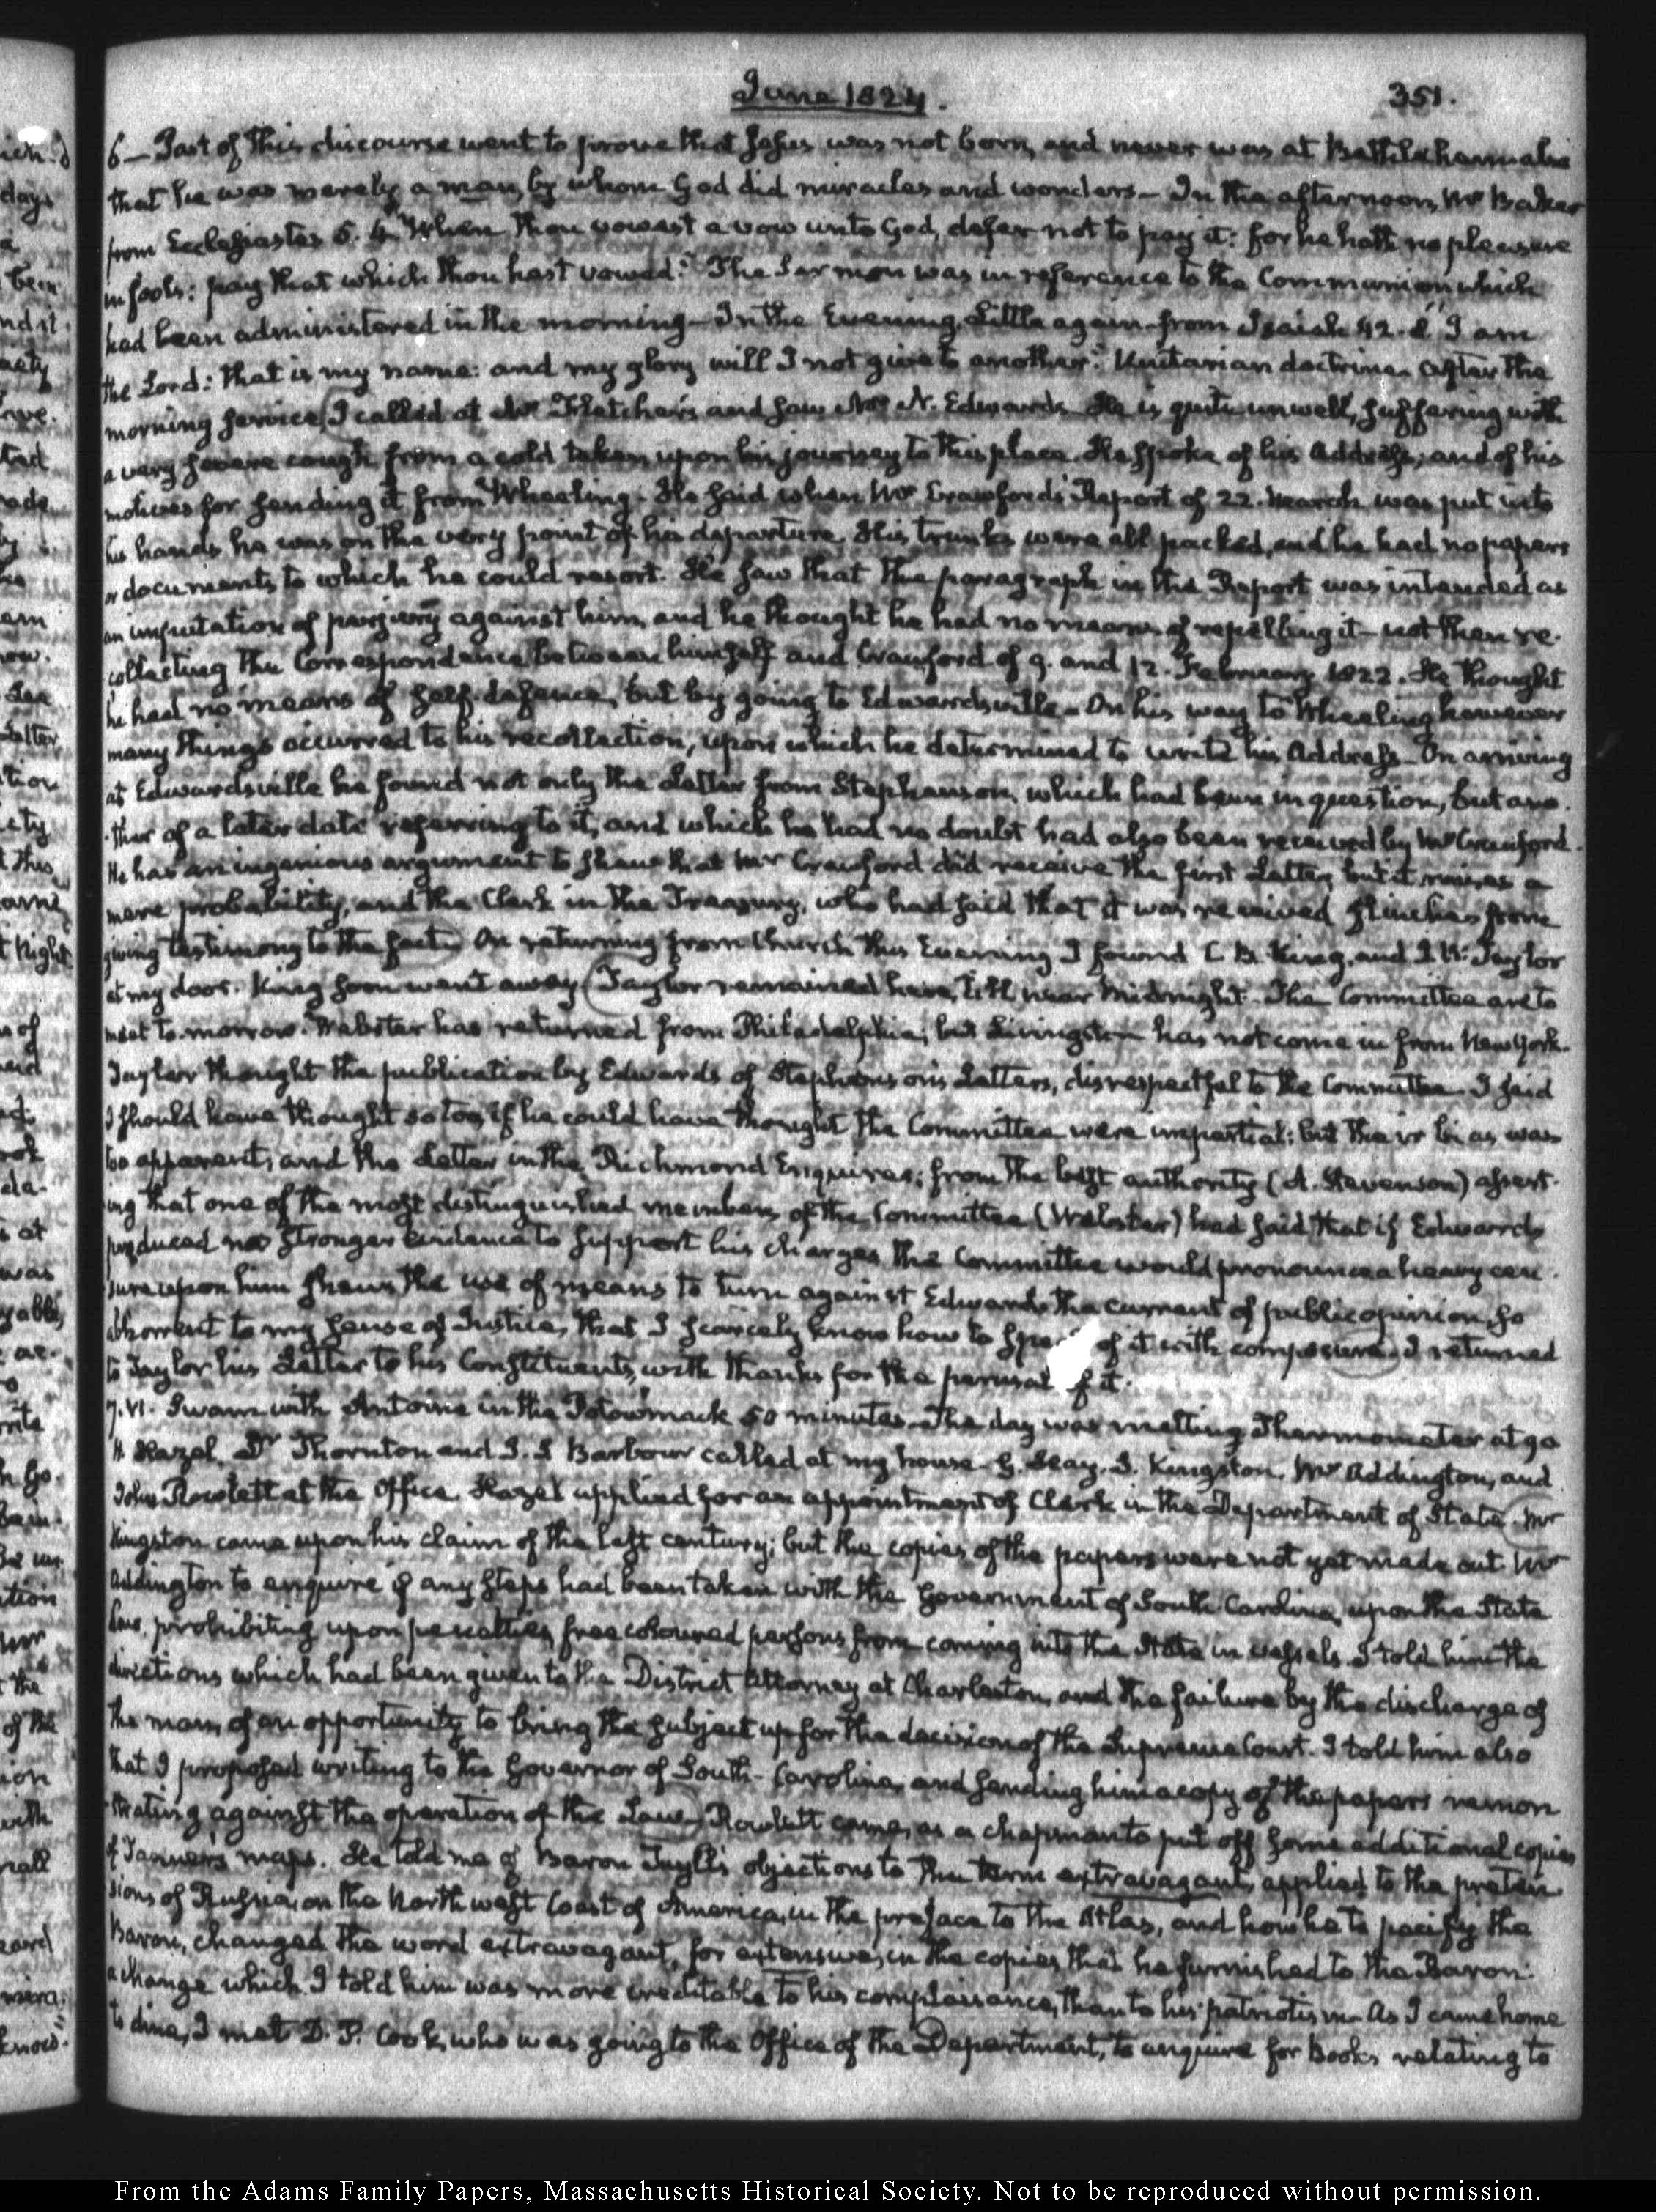 June 1824.
351.
6— Part of this discourse went to prove that Jesus was not born, and never was at Bethlehem
that he was merely a man, by whom God did miracles and wonders— In the afternoon, Mr Baker
from Ecclesiastes 5. 4. "When thou vowest a vow unto God, defer not to pay it: for he hath no pleasure
in fools: pay that which thou hast vowed." The Sermon was in reference to the Communion which
had been administered in the morning— In the Evening, Little again from Isaiah 42. 8 "I am
the Lord: that is my name: and my glory will I not give to another." Unitarian doctrine. After the
morning service, I called at Mr Fletcher's and saw Mr N. Edwards. He is quite unwell, suffering with
a very severe cough from a cold taken upon his journey to this place. He spoke of his Address; and of his
motives for sending it from Wheeling. He said when Mr Crawford's Report of 22. March was put into
his hands he was on the very point of his departure. His trunks were all packed, and he had no papers
or documents to which he could resort. He saw that the paragraph in the Report was intended as
an imputation of perjury against him, and he thought he had no means of repelling it— not then re-
collecting the Correspondence between himself and Crawford of 9. and 12. February 1822. He thought
he had no means of self defence, but by going to Edwardsville. On his way to Wheeling however
many things occurred to his recollection, upon which he determined to write his Address— On arriving
at Edwardsville he found not only the Letter from Stephenson, which had been in question, but ano-
-ther of a later date referring to it, and which he had no doubt had also been received by Mr Crawford.
He has an ingenious argument to shew that Mr Crawford did receive the first Letter, but it raises a
mere probability, and the Clerk in the Treasury, who had said that it was received flinches from
giving testimony to the fact. On returning from Church this Evening I found C. B. King, and J. W. Taylor
at my door. King soon went away. Taylor remained here, till near Midnight. The Committee are to
meet to-morrow. Webster has returned from Philadelphia; but Livingston has not come in from New York.
Taylor thought the publication by Edwards of Stephenson's Letters, disrespectful to the Committee. I said
I should have thought so too, if he could have thought the Committee were impartial: but their bias was
too apparent, and the Letter in the Richmond Enquirer; from the best authority (A. Stevenson) assert-
ing that one of the most distinguished members of the Committee (Webster) had said that if Edwards
produced no stronger evidence to support his charges the Committee would pronounce a heavy cen-
sure upon him shews the use of means to turn against Edwards the current of public opinion, so
abhorrent to my sense of Justice, that I scarcely know how to speak of it with composure. I returned
to Taylor his Letter to his Constituents, with thanks for the perusal of it.
7. VI. Swam with Antoine in the Potowmack 50 minutes. The day was melting. Thermometer at 90
H. Hazel, Dr Thornton and J. S Barbour called at my house— G. Hay. S. Kingston. Mr Addington, and
John Rowlett at the Office. Hazel applied for an appointment of Clerk in the Department of State. Mr
Kingston came upon his claim of the last century; but the copies of the papers were not yet made out. Mr
Addington to enquire if any steps had been taken with the Government of South Carolina, upon the State
Law, prohibiting upon penalties, free coloured persons from coming into the State in vessels. I told him the
directions which had been given to the District Attorney at Charleston, and the failure by the discharge of
the man, of an opportunity to bring the subject up for the decision of the Supreme Court. I told him also
that I proposed writing to the Governor of South-Carolina, and sending him a copy of the papers remon
strating against the operation of the Law. Rowlett came, as a chapman to put off some additional copies
of Tanner's maps. He told me of Baron Tuyll's objections to the term extravagant, applied to the preten-
sions of Russia, on the North west Coast of America, in the preface to the Atlas, and how he to pacify the
Baron, changed the word extravagant, for extensive, in the copies that he furnished to the Baron:
a change which I told him was more creditable to his complaisance, than to his patriotism— As I came home
to dine, I met D. P. Cook, who was going to the Office of the Department, to enquire for Books relating to
From the Adams Family Papers, Massachusetts Historical Society. Not to be reproduced without permission.